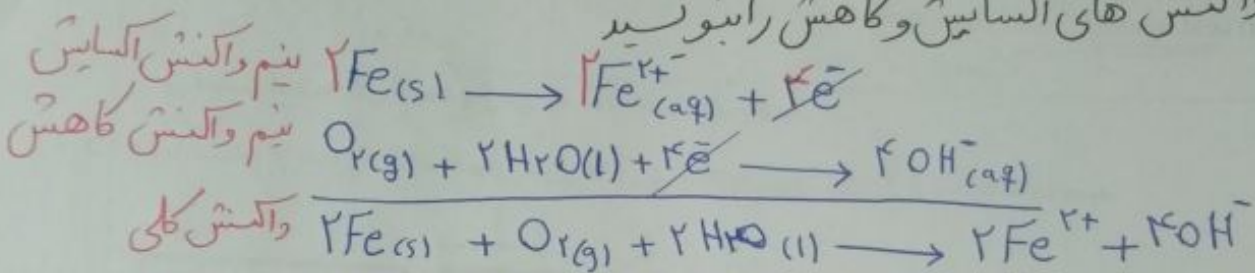 های اکسایش و کاهش را بنویسید
نیم واکنش اکسایش ۲Fe(s) → ۲Fe²⁺(aq) + ۴e⁻
نیم واکنش کاهش O۲(g) + ۲H۲O(l) + ۴e⁻ → ۴OH⁻(aq)
واکنش کلی ۲Fe(s) + O۲(g) + ۲H۲O(l) → ۲Fe²⁺ + ۴OH⁻